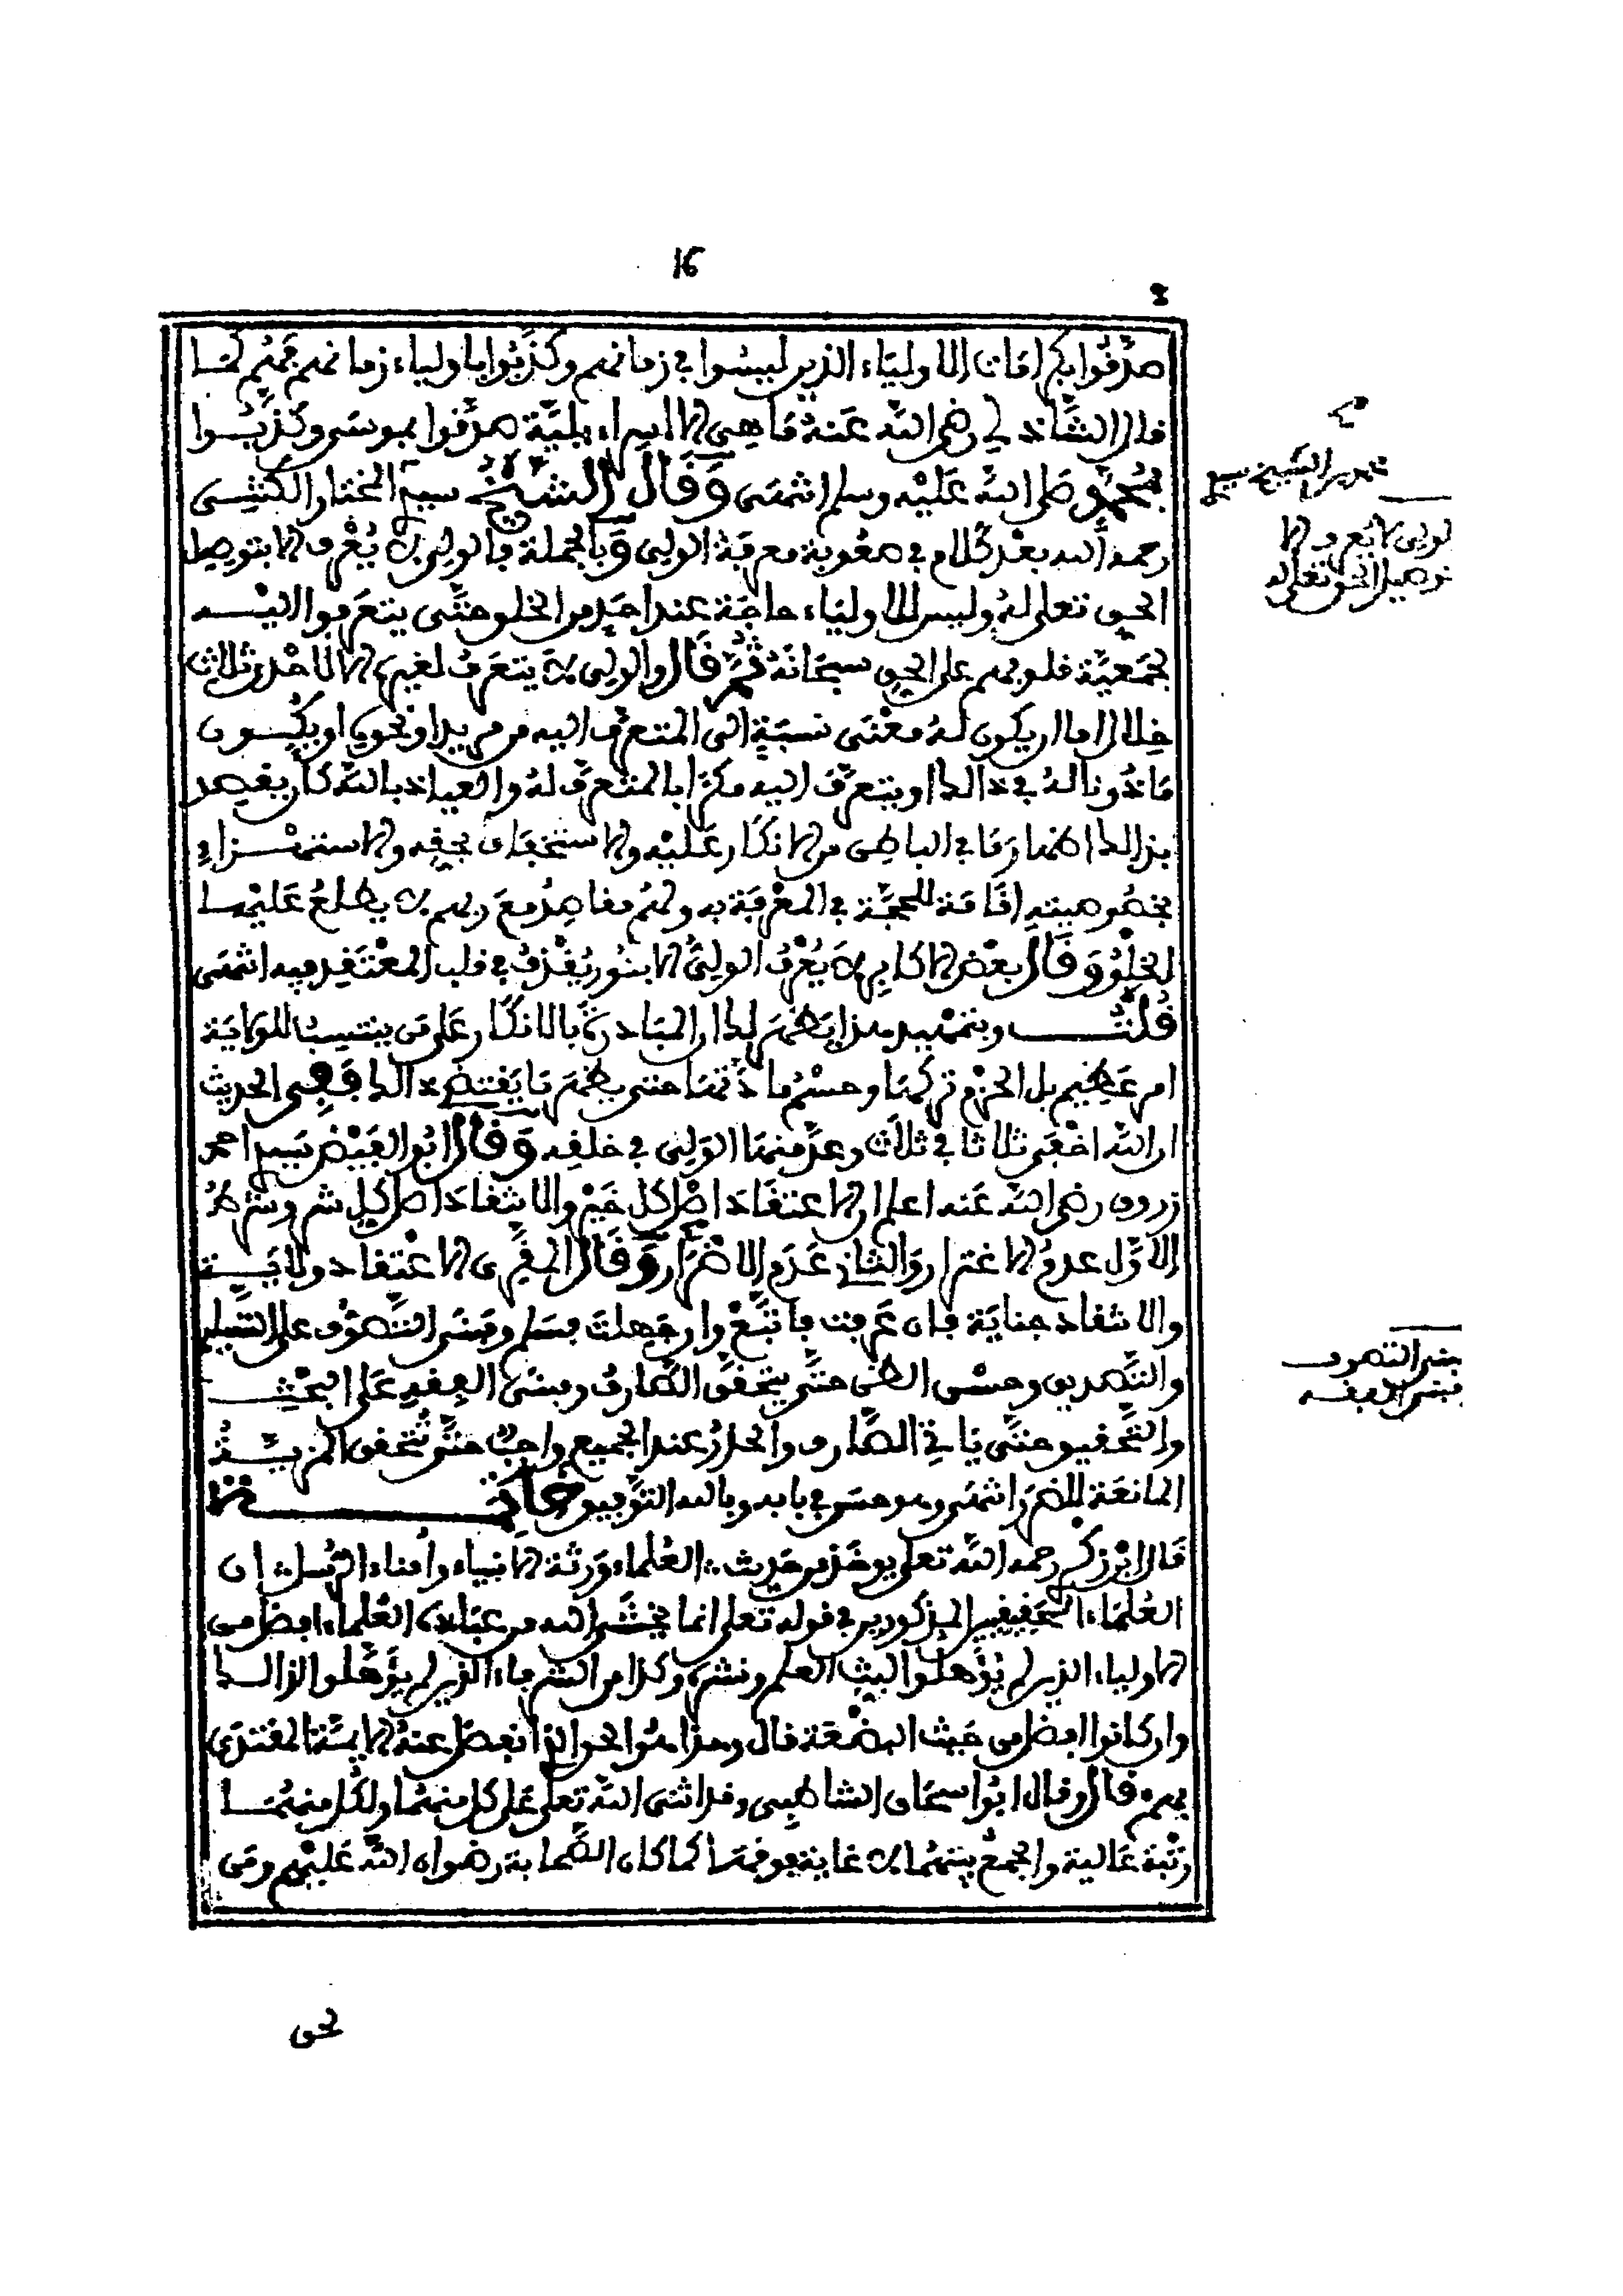 16
صدقوا بكرامات الاولياء الذين ليسوا في زمانهم وكذبوا باولياء زمانهم فهم كما
قال الشاذلي رضي الله عنه ما هي الا اسراءيلية صدقوا بموسى وكذبوا
بمحمد صلى الله عليه وسلم انتهى وقال الشيخ سيد المختار الكنتي
رحمه الله بعد كلام في صعوبة معرفة الولي وبالجملة فالولي لا يعرف الا بتوصيل
الحق تعلى له وليس للاولياء حاجة عند احد من الخلق حتى يتعرفوا اليه
لجمعية قلوبهم على الحق سبحانه ثم قال والولي لا يتعرف لغيره الا لاحدى ثلاث
خلال اما ان يكون له معنى نسبة الى المتعرف اليه من مريد او نحوه او يكون
ماذونا له في ذالك او يتعرف اليه مكرا بالمتعرف له والعياذ بالله كان يقصد
بذالك اظهار ما في الباطن من الانكار عليه والاستخفاف بحقه والاستهزاء
بخصوصيته اقامة للحجة في المعرفة به ولهم مقاصد مع ربهم لا يطلع عليها
الخلق وقال بعض الاكابر لا يعرف الولي الا بنور يقذف في قلب المعتقد فيه انتهى
قلت وبتمهيد هذا يظهر لك ان المبادرة بالانكار على من ينتسب للولاية
امر عظيم بل الحزم تركها وحسم مادتها حتى يظهر ما يقتضي ذالك ففي الحديث
ان الله اخفى ثلاثا في ثلاث وعد منها الولي في خلقه وقال ابو الفيض سيد احمد
زروق رضي الله عنه اعلم ان الاعتقاد اصل كل خير والانتقاد اصل كل شر وشرط
الاول عدم الاغترار والثاني عدم الاضرار وقال المقري الاعتقاد ولاية
والانتقاد جناية فان عرفت فاتبع وان جهلت فسلم ومبنى التصوف على التسليم
والتصديق وحسن الظن حتى يتحقق الصارف ومبنى الفقه على البحث
والتحقيق حتى ياتي الصارف والحذر عند الجميع واجب حتى تتحقق المزية
المانعة للضرر انتهى وهو حسن في بابه وبالله التوفيق خاتمة
قال ابن زكري رحمه الله تعلى يوخذ من حديث العلماء ورثة الانبياء وامناء الرسل ان
العلماء الحقيقيين المذكورين في قوله تعلى انما يخشى الله من عباده العلماء افضل من
الاولياء الذين لم يؤهلوا لبث العلم ونشره وكذا من الشرفاء الذين لم يؤهلوا لذالك
وان كانوا افضل من حيث البضعة قال وهذا هو الحق الذي انفصل عنه الايمة المقتدى
بهم قال وقال ابو اسحاق الشاطبي وقد اثنى الله تعلى على كل منهما ولكل منهما
رتبة عالية والجمع بينهما لا غاية فوقها كما كان الصحابة رضوان الله عليهم ومن
لولي لا يعرف الا
مبنى التصوف
مبنى الفقه
نحى